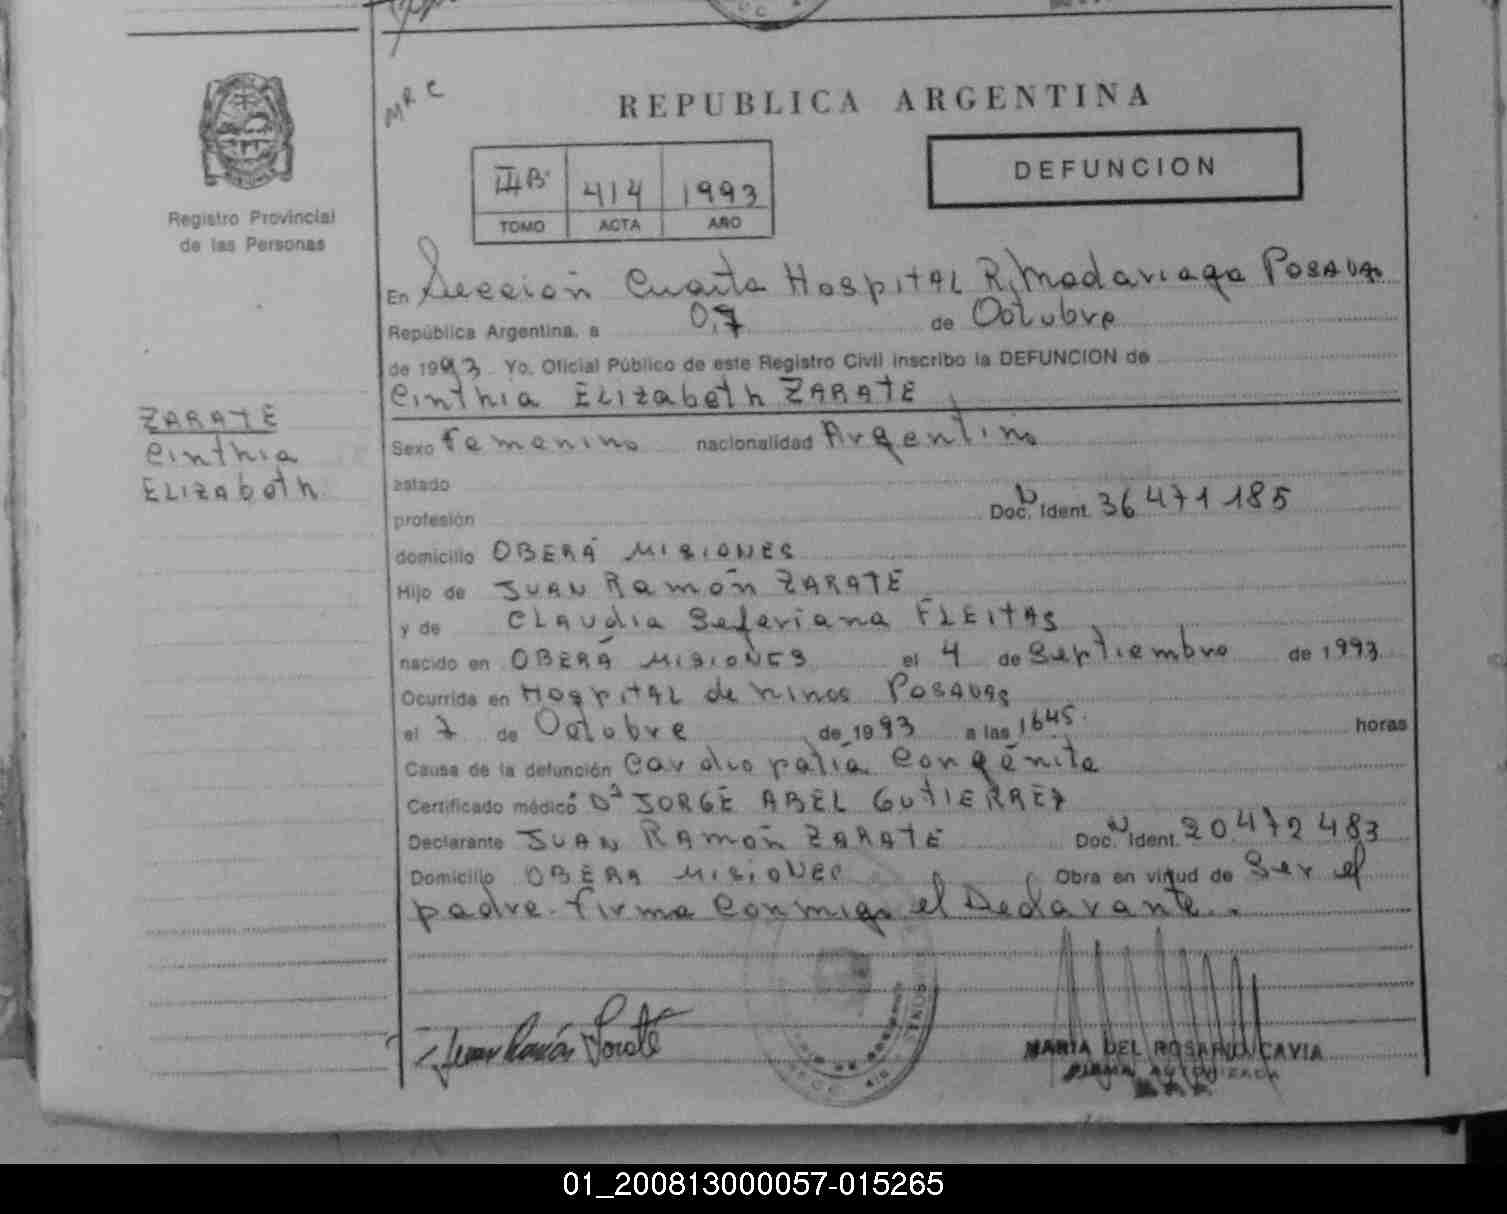 MRC
REPUBLICA ARGENTINA
DEFUNCION
III B 414 1993
TOMO ACTA AÑO
Registro Provincial
de las Personas
En Sección Cuarta Hospital R. Madariaga POSADAS
República Argentina, a 07 de Octubre
de 1993 Yo, Oficial Público de este Registro Civil inscribo la DEFUNCION de
Cinthia ELIZABETH ZARATE
ZARATE
Cinthia
ELIZABETH
Sexo Femenino nacionalidad Argentina
estado
profesión Doc. Ident. 36471185
domicilio OBERÁ MISIONES
Hijo de JUAN Ramón ZARATE
y de CLAUDIA Seferiana FLEITAS
nacido en OBERÁ MISIONES el 4 de Septiembre de 1993
Ocurrida en Hospital de ninos POSADAS
el 7 de Octubre de 1993 a las 1645 horas
Causa de la defunción Cardiopatía Congénita
Certificado médico Dr JORGE ABEL GUTIERREZ
Declarante JUAN RAMÓN ZARATE Doc. Ident. 20.472483
Domicilio OBERA MISIONES Obra en virtud de Ser el
padre. firma Conmigo el Declarante.
Juan Ramón Zarate
MARIA DEL ROSARIO CAVIA
FIRMA AUTORIZADA
01_200813000057-015265